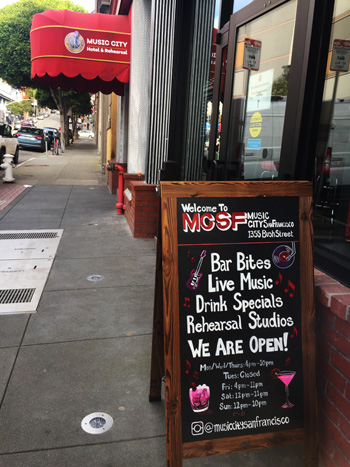 MUSIC CITY
Hotel & Rehearsal
Welcome To
MCSF MUSIC
CITY SAN FRANCISCO
1355 Bush Street
Bar Bites
Live Music
Drink Specials
Rehearsal Studios
WE ARE OPEN!
Mon/Wed/Thurs: 4pm-10pm
Tues: Closed
Fri: 4pm-11pm
Sat: 12pm-11pm
Sun: 12pm-10pm
@musiccitysanfrancisco